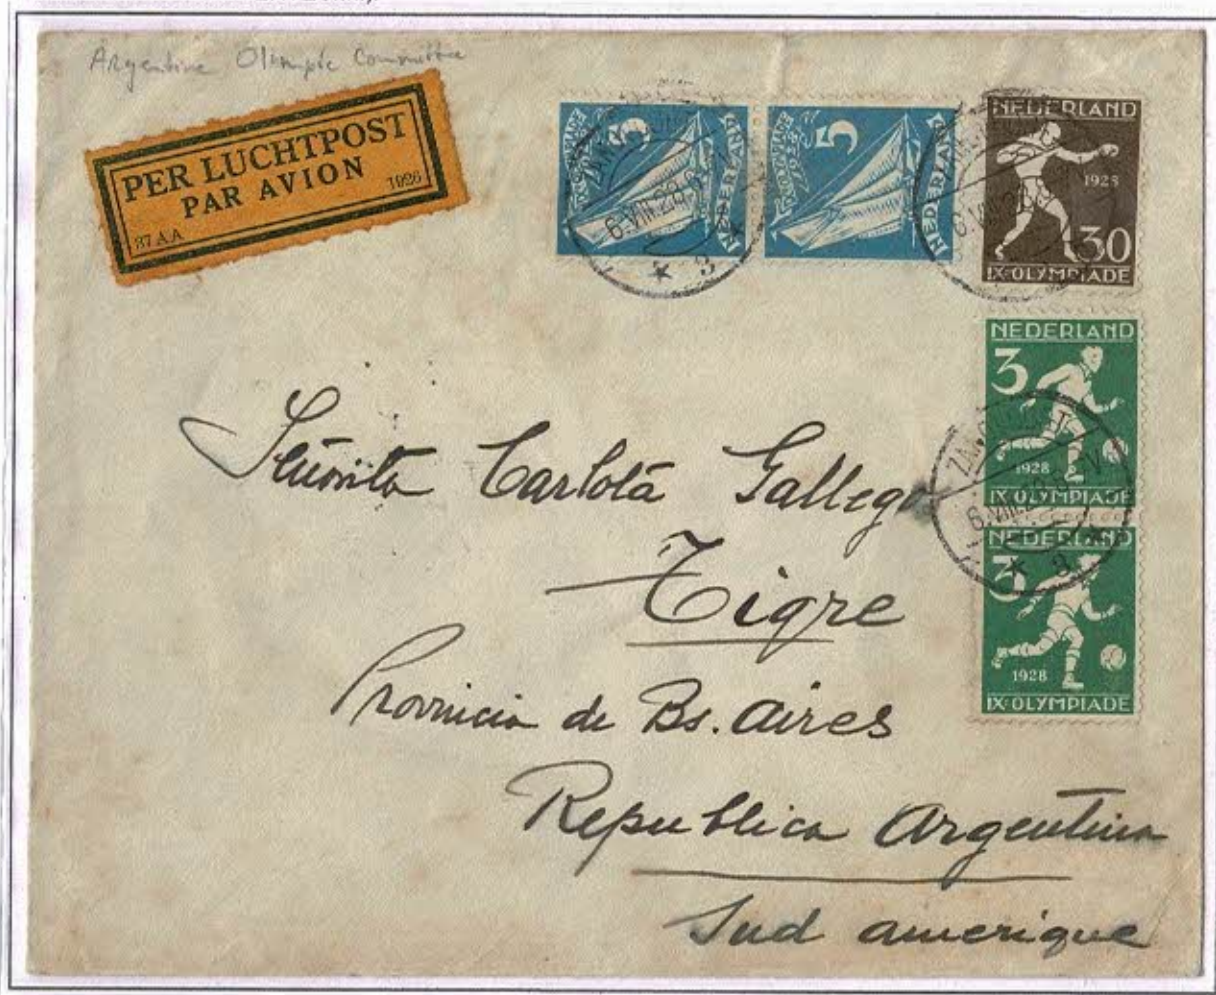 Argentine Olimpic Committee
PER LUCHTPOST
PAR AVION
37 AA 1926
5 NEDERLAND
5 NEDERLAND
6.VIII.28
NEDERLAND
1928
30
IX·OLYMPIADE
NEDERLAND
3
1928
IX·OLYMPIADE
6.VIII.28
NEDERLAND
3
1928
IX·OLYMPIADE
Señorita Carlota Gallego
Tigre
Provincia de Bs. Aires
Republica Argentina
Sud amerique